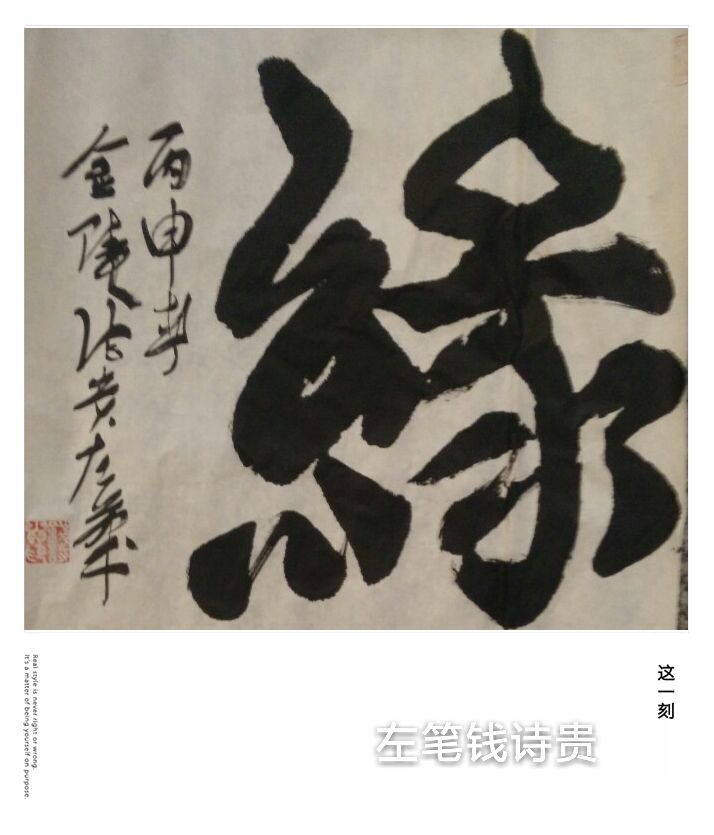 緣
丙申春
金陵诗贵左笔
这一刻
左笔钱诗贵
Real style is never right or wrong.
It's a matter of being yourself on purpose.